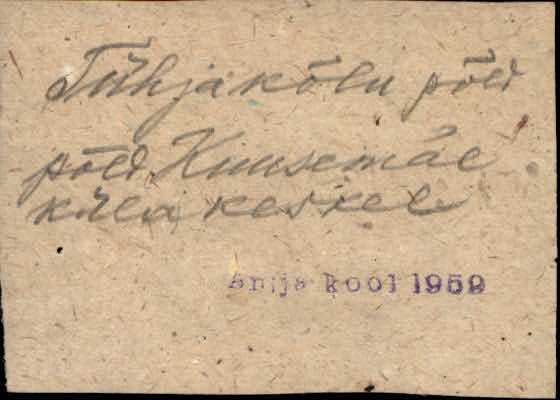 Tühjakõlu põld
põld, Kuusemäe
küla keskel
Antja kool 1959